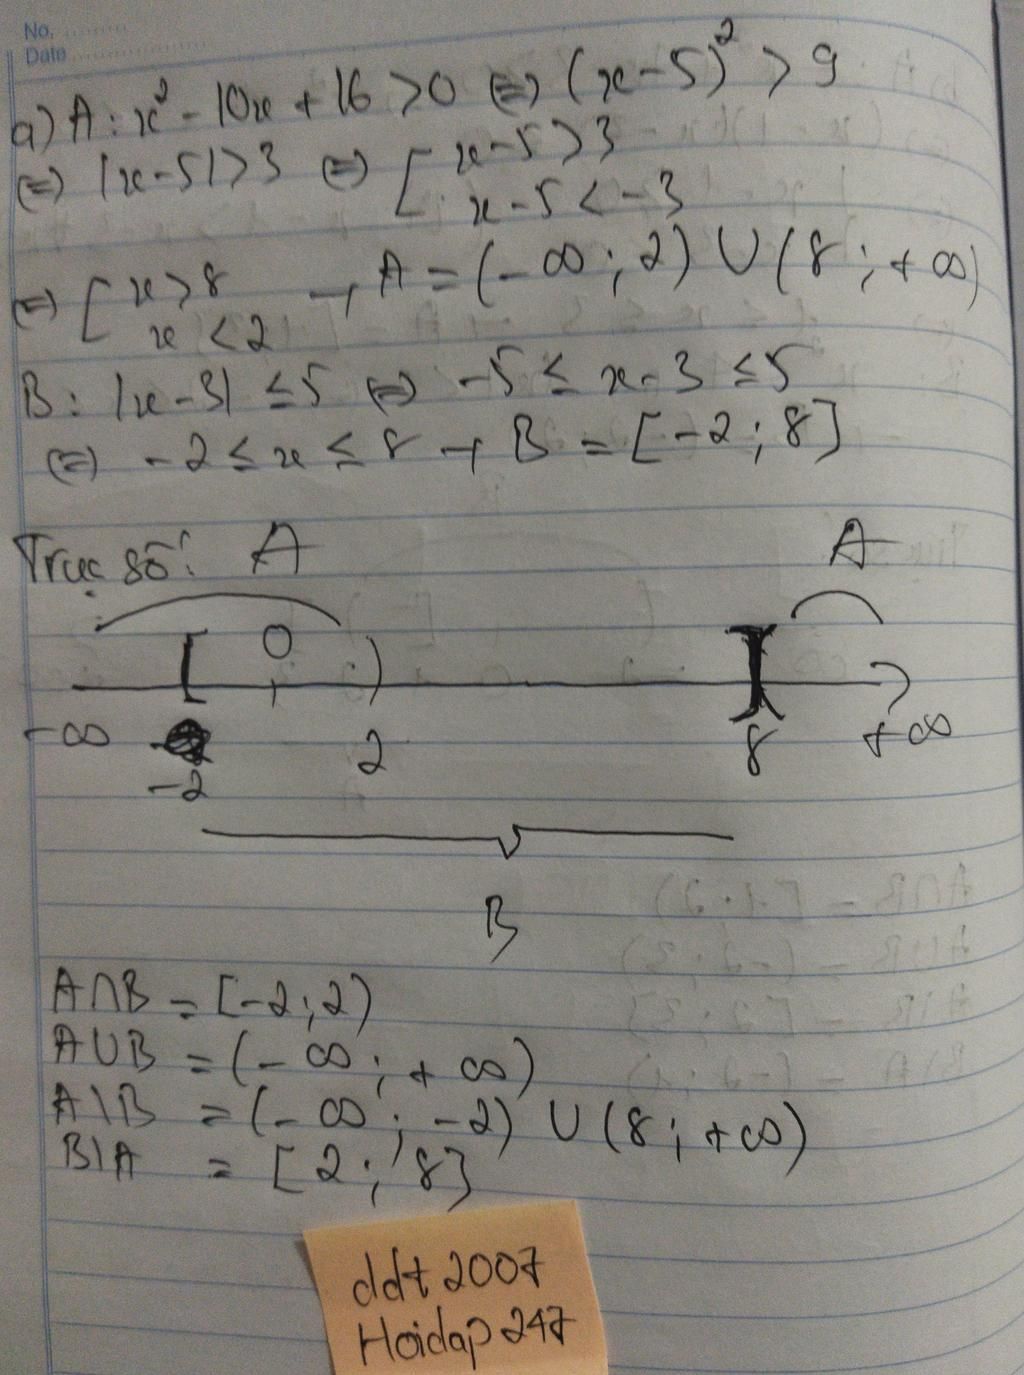 No.
Date
a) A: x² - 10x + 16 > 0 ⇔ (x-5)² > 9
⇔ |x-5| > 3 ⇔ [ x-5 > 3
x-5 < -3
⇔ [ x > 8 → A = (-∞; 2) ∪ (8; +∞)
x < 2
B: |x-3| ≤ 5 ⇔ -5 ≤ x-3 ≤ 5
⇔ -2 ≤ x ≤ 8 → B = [-2; 8]
Trục số: A A
[ 0 ) ] (
-∞ -2 2 8 +∞
B
A∩B = [-2; 2)
A∪B = (-∞; +∞)
A\B = (-∞; -2) ∪ (8; +∞)
B\A = [2; 8]
ddt2007
Hoidap247